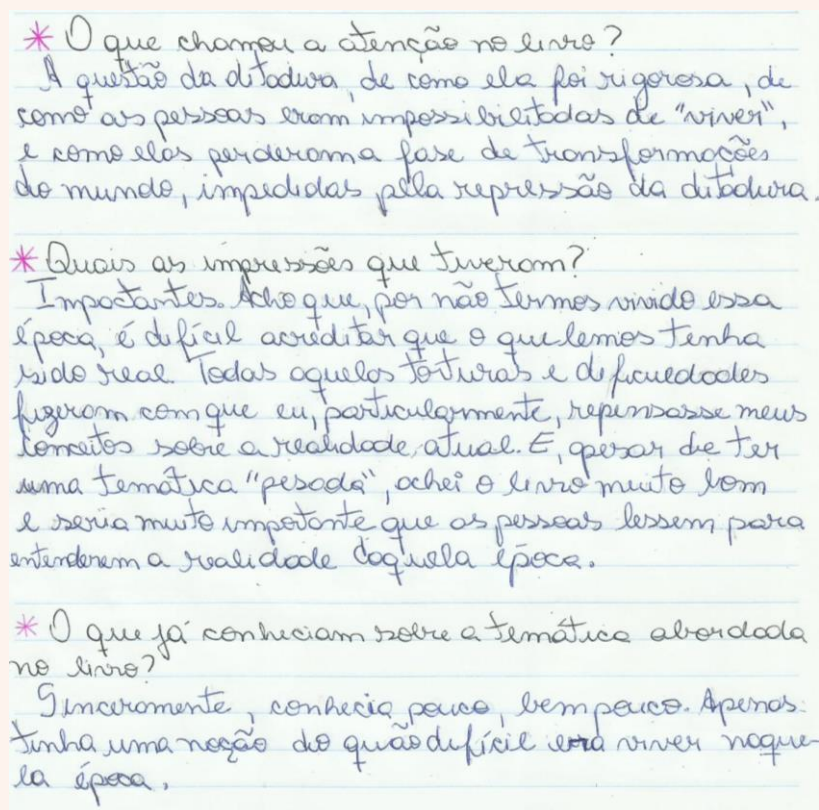 * O que chamou a atenção no livro?
A questão da ditadura, de como ela foi rigorosa, de
como as pessoas eram impossibilitadas de "viver",
e como elas perderam a fase de transformações
do mundo, impedidas pela repressão da ditadura.
* Quais as impressões que tiveram?
Impactantes. Acho que, por não termos vivido essa
época, é difícil acreditar que o que lemos tenha
sido real. Todas aquelas torturas e dificuldades
fizeram com que eu, particularmente, repensasse meus
conceitos sobre a realidade atual. E, apesar de ter
uma temática "pesada", achei o livro muito bom
e seria muito importante que as pessoas lessem para
entenderem a realidade daquela época.
* O que já conheciam sobre a temática abordada
no livro?
Sinceramente, conhecia pouco, bem pouco. Apenas
tinha uma noção do quão difícil era viver naque-
la época.